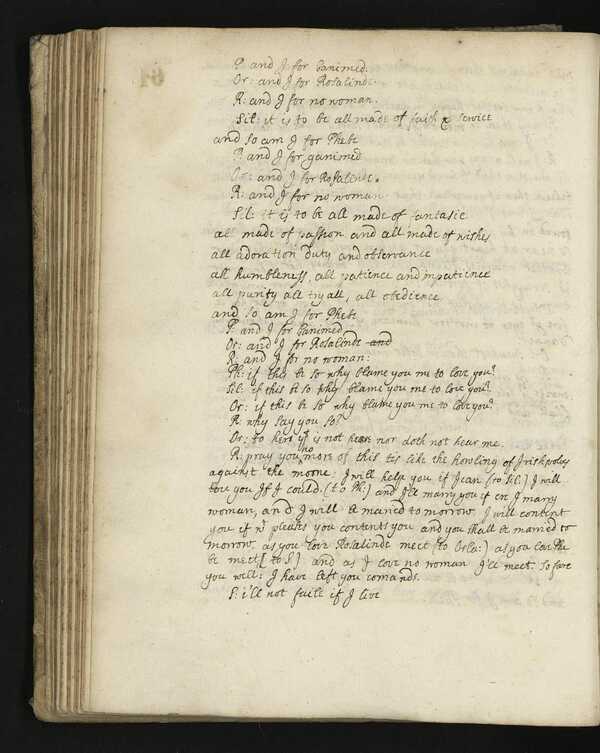 P: and J for Ganimed.
Or: and J for Rosalinde.
R: and J for no woman.
Sil: it is to be all made of faith & service
and so am J for Phebe
P: and J for ganimed
Or: and J for Rosalinde.
R: and J for no woman
Sil: it is to be all made of fantasie
all made of passion and all made of wishes
all adoration duty and observance
all humbleness, all patience and impatience
all purity all tryall, all obedience
and so am J for Phebe
P: and J for Ganimed
Or: and J for Rosalinde and
R: and J for no woman:
Ph: if this be so why blame you me to love you?
Sil: if this be so why blame you me to love you?
Or: if this be so why blame you me to love you?
R: why say you so?
Or: to her yt is not here nor doth not hear me.
R: pray you no more of this tis like the howling of Jrish wolves
against the moone: J will help you if J can (to Sil:) J will
love you Jf J could. (to Ph:) and J'le marry you if ere J marry
woman, and J will be maried to morrow. J will content
you if wt pleases you contents you and you shall be maried to
morrow. as you love Rosalinde meet (to Orla:) as you love Phe
be meet [to S] and as J love no woman J'll meet. so fare
you well: J have left you comands.
S: i'll not faile if J live